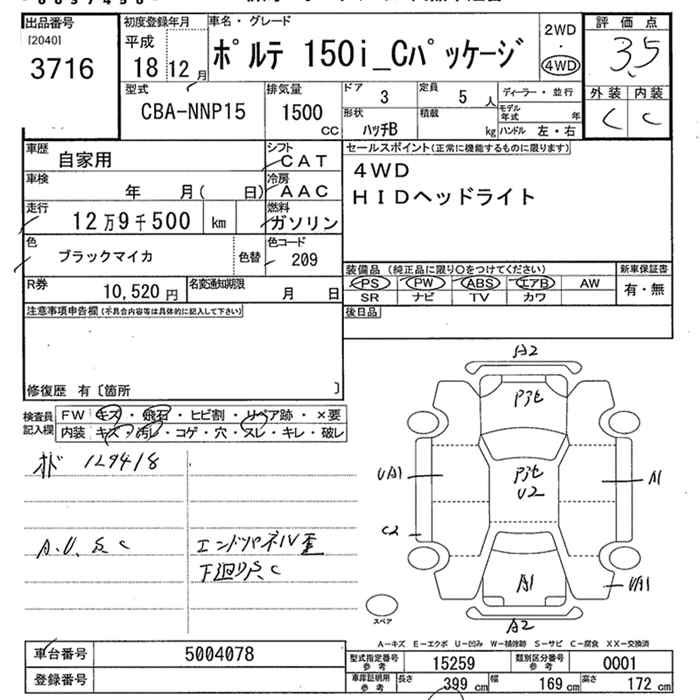 出品番号
[2040]
3716
初度登録年月
平成
18 12月
車名・グレード
ポルテ 150i_Cパッケージ
2WD
・
4WD
評価点
3.5
外装 内装
C C
型式
CBA-NNP15
排気量
1500
cc
ドア
3
定員
5 人
ディーラー・並行
形状
ハッチB
積載
kg
モデル年式 年
ハンドル 左・右
車歴
自家用
シフト
CAT
車検
年 月( 日)
冷房
AAC
走行
12万9千500 km
燃料
ガソリン
色
ブラックマイカ
色替
色コード
209
R券
10,520円
名変通知期限
月 日
セールスポイント(正常に機能するものに限ります)
4WD
HIDヘッドライト
装備品(純正品に限り○をつけてください)
新車保証書
PS PW ABS エアB AW
有・無
SR ナビ TV カワ
後日品
注意事項申告欄(不具合内容等は具体的に記入して下さい)
修復歴 有〔箇所 〕
検査員記入欄
FW キズ・飛石・ヒビ割・リペア跡・×要
内装 キズ・汚レ・コゲ・穴・スレ・キレ・破レ
129418
A.U. C
エンドパネル歪
下廻り C
A2
UA1
C2
U2
A1
A1
UA1
A2
スペア
A-キズ E-エクボ U-凹み W-補修跡 S-サビ C-腐食 XX-交換済
車台番号
5004078
登録番号
型式指定番号参考
15259
類別区分番号参考
0001
車庫証明用参考
長さ 399 cm
幅 169 cm
高さ 172 cm